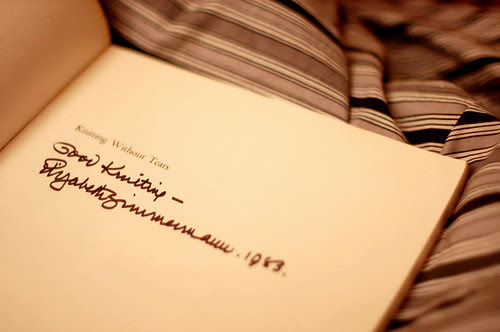 Knitting Without Tears
Good Knitting –
Elizabeth Zimmermann. 1983.